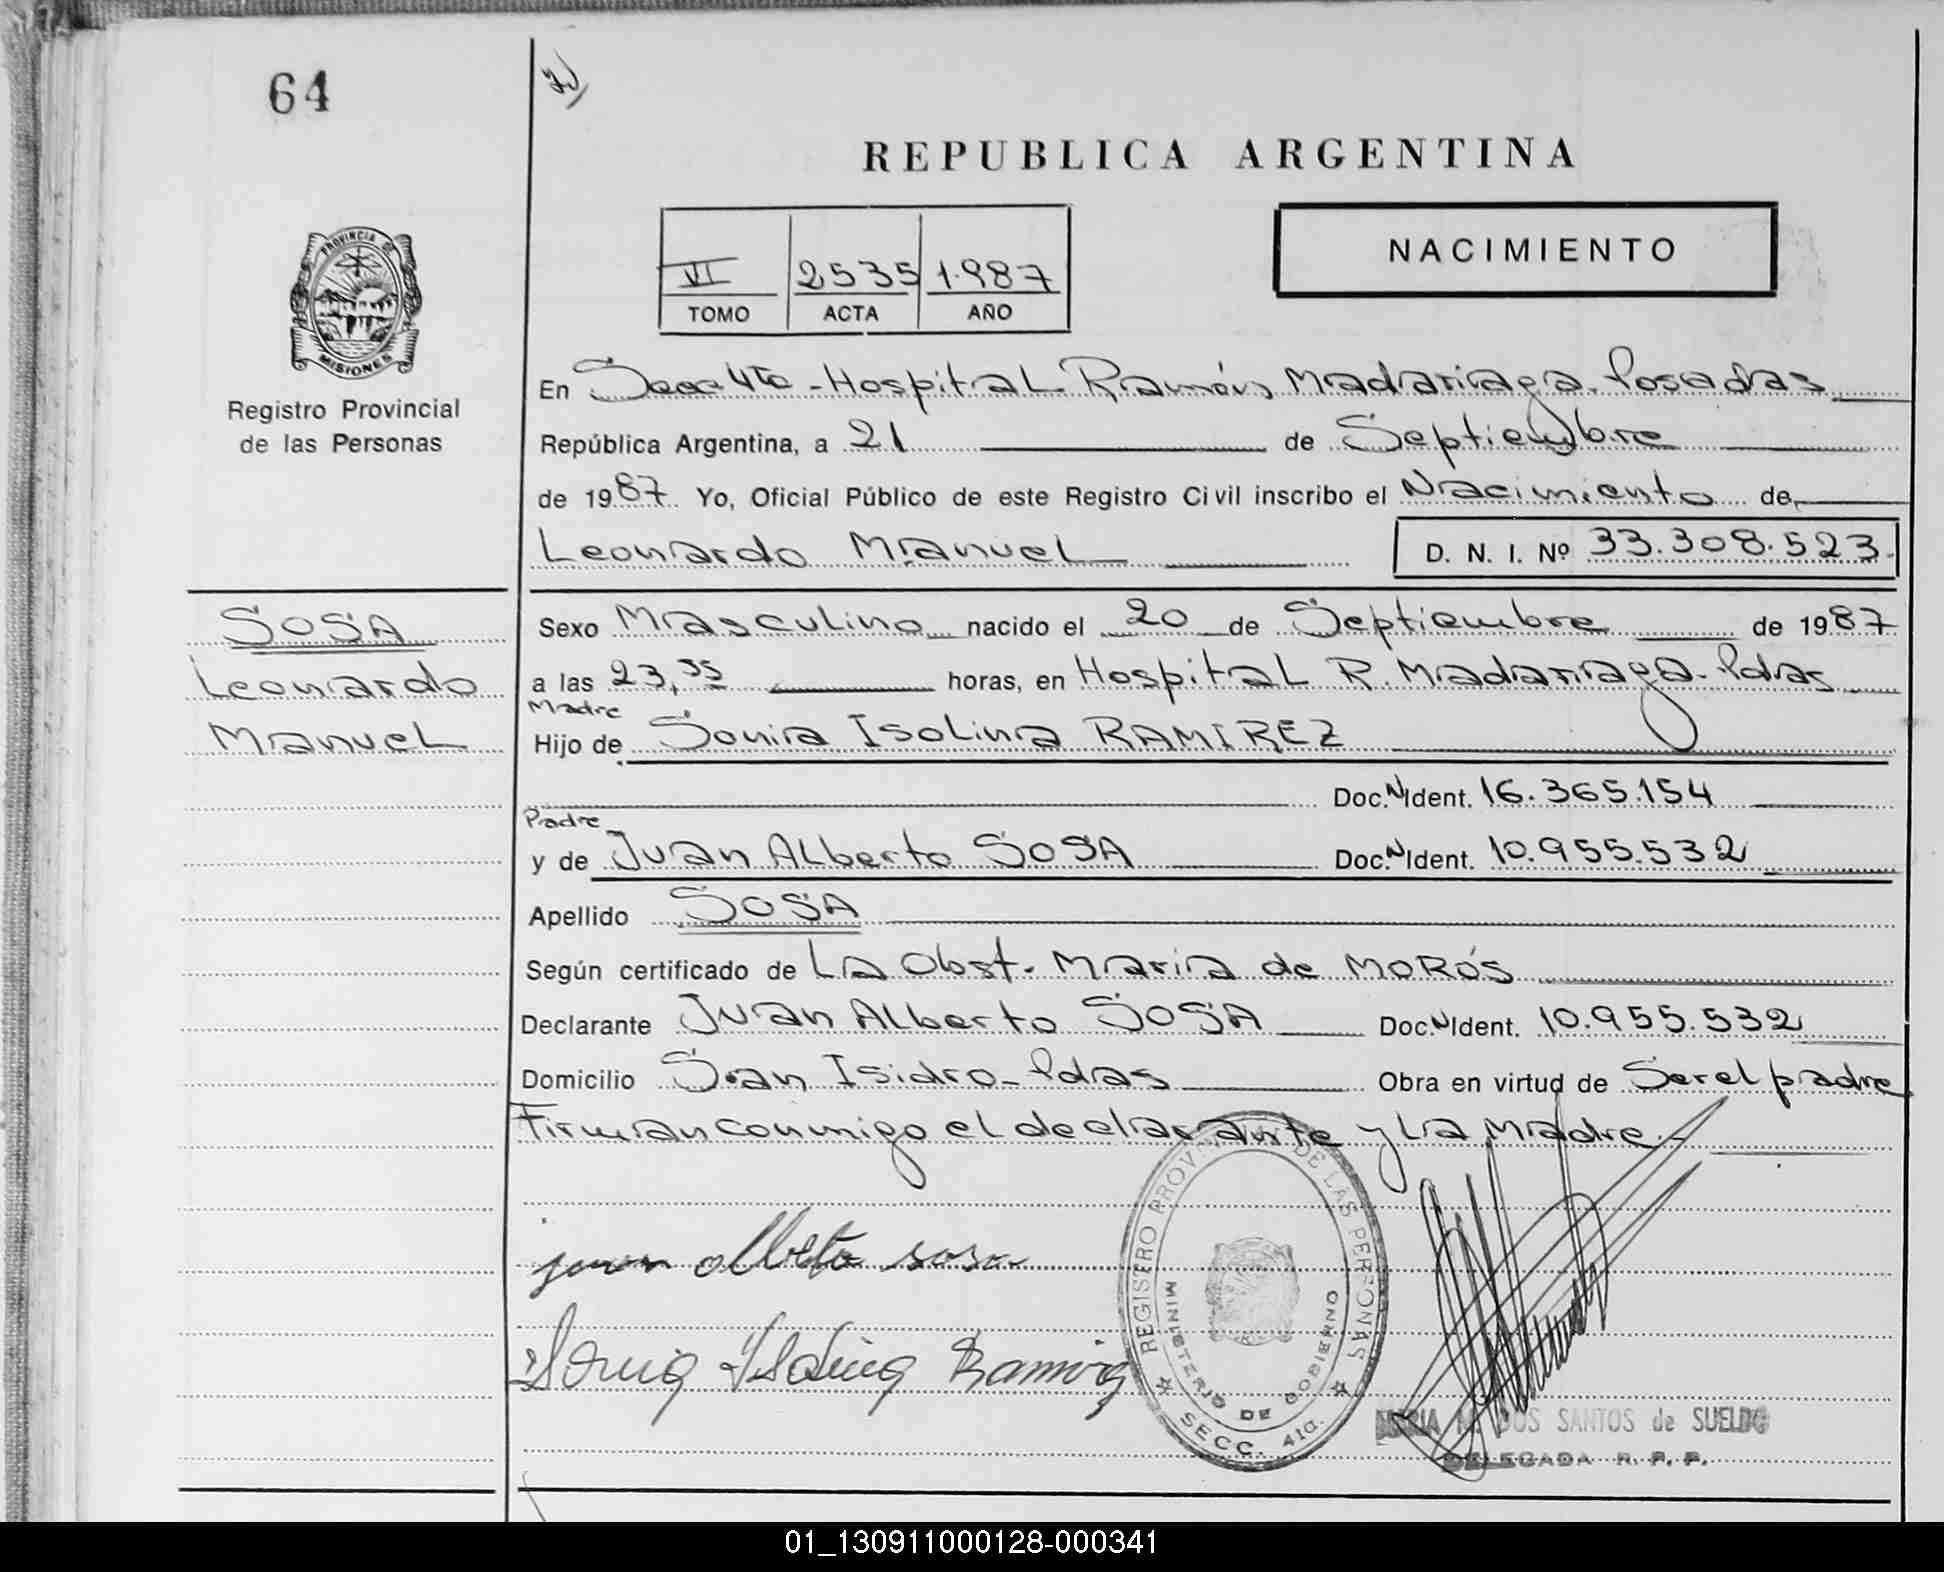 64
REPUBLICA ARGENTINA
NACIMIENTO
VI 2535 1.987
TOMO ACTA AÑO
PROVINCIA DE
MISIONES
Registro Provincial
de las Personas
En Secc 4ta - Hospital Ramón Madariaga. Posadas
República Argentina, a 21 de Septiembre
de 1987. Yo, Oficial Público de este Registro Civil inscribo el Nacimiento de
Leonardo Manuel D. N. I. Nº 33.308.523
SOSA
Leonardo
Manuel
Sexo Masculino nacido el 20 de Septiembre de 1987
a las 23,35 horas, en Hospital R. Madariaga - Pdas
Madre
Hijo de Sonia Isolina RAMIREZ
Doc. N Ident. 16.365.154
Padre
y de Juan Alberto SOSA Doc. N Ident. 10.955.532
Apellido SOSA
Según certificado de La Obst. Maria de Morós
Declarante Juan Alberto SOSA Doc. N Ident. 10.955.532
Domicilio San Isidro - Pdas Obra en virtud de Ser el padre
Firman conmigo el declarante y La Madre.-
juan alberto sosa
Sonia Isolina Ramirez
REGISTRO PROVINCIAL DE LAS PERSONAS
MINISTERIO DE GOBIERNO
SECC. 4ta.
MARIA M. DOS SANTOS de SUELDO
DELEGADA R. P. P.
01_130911000128-000341